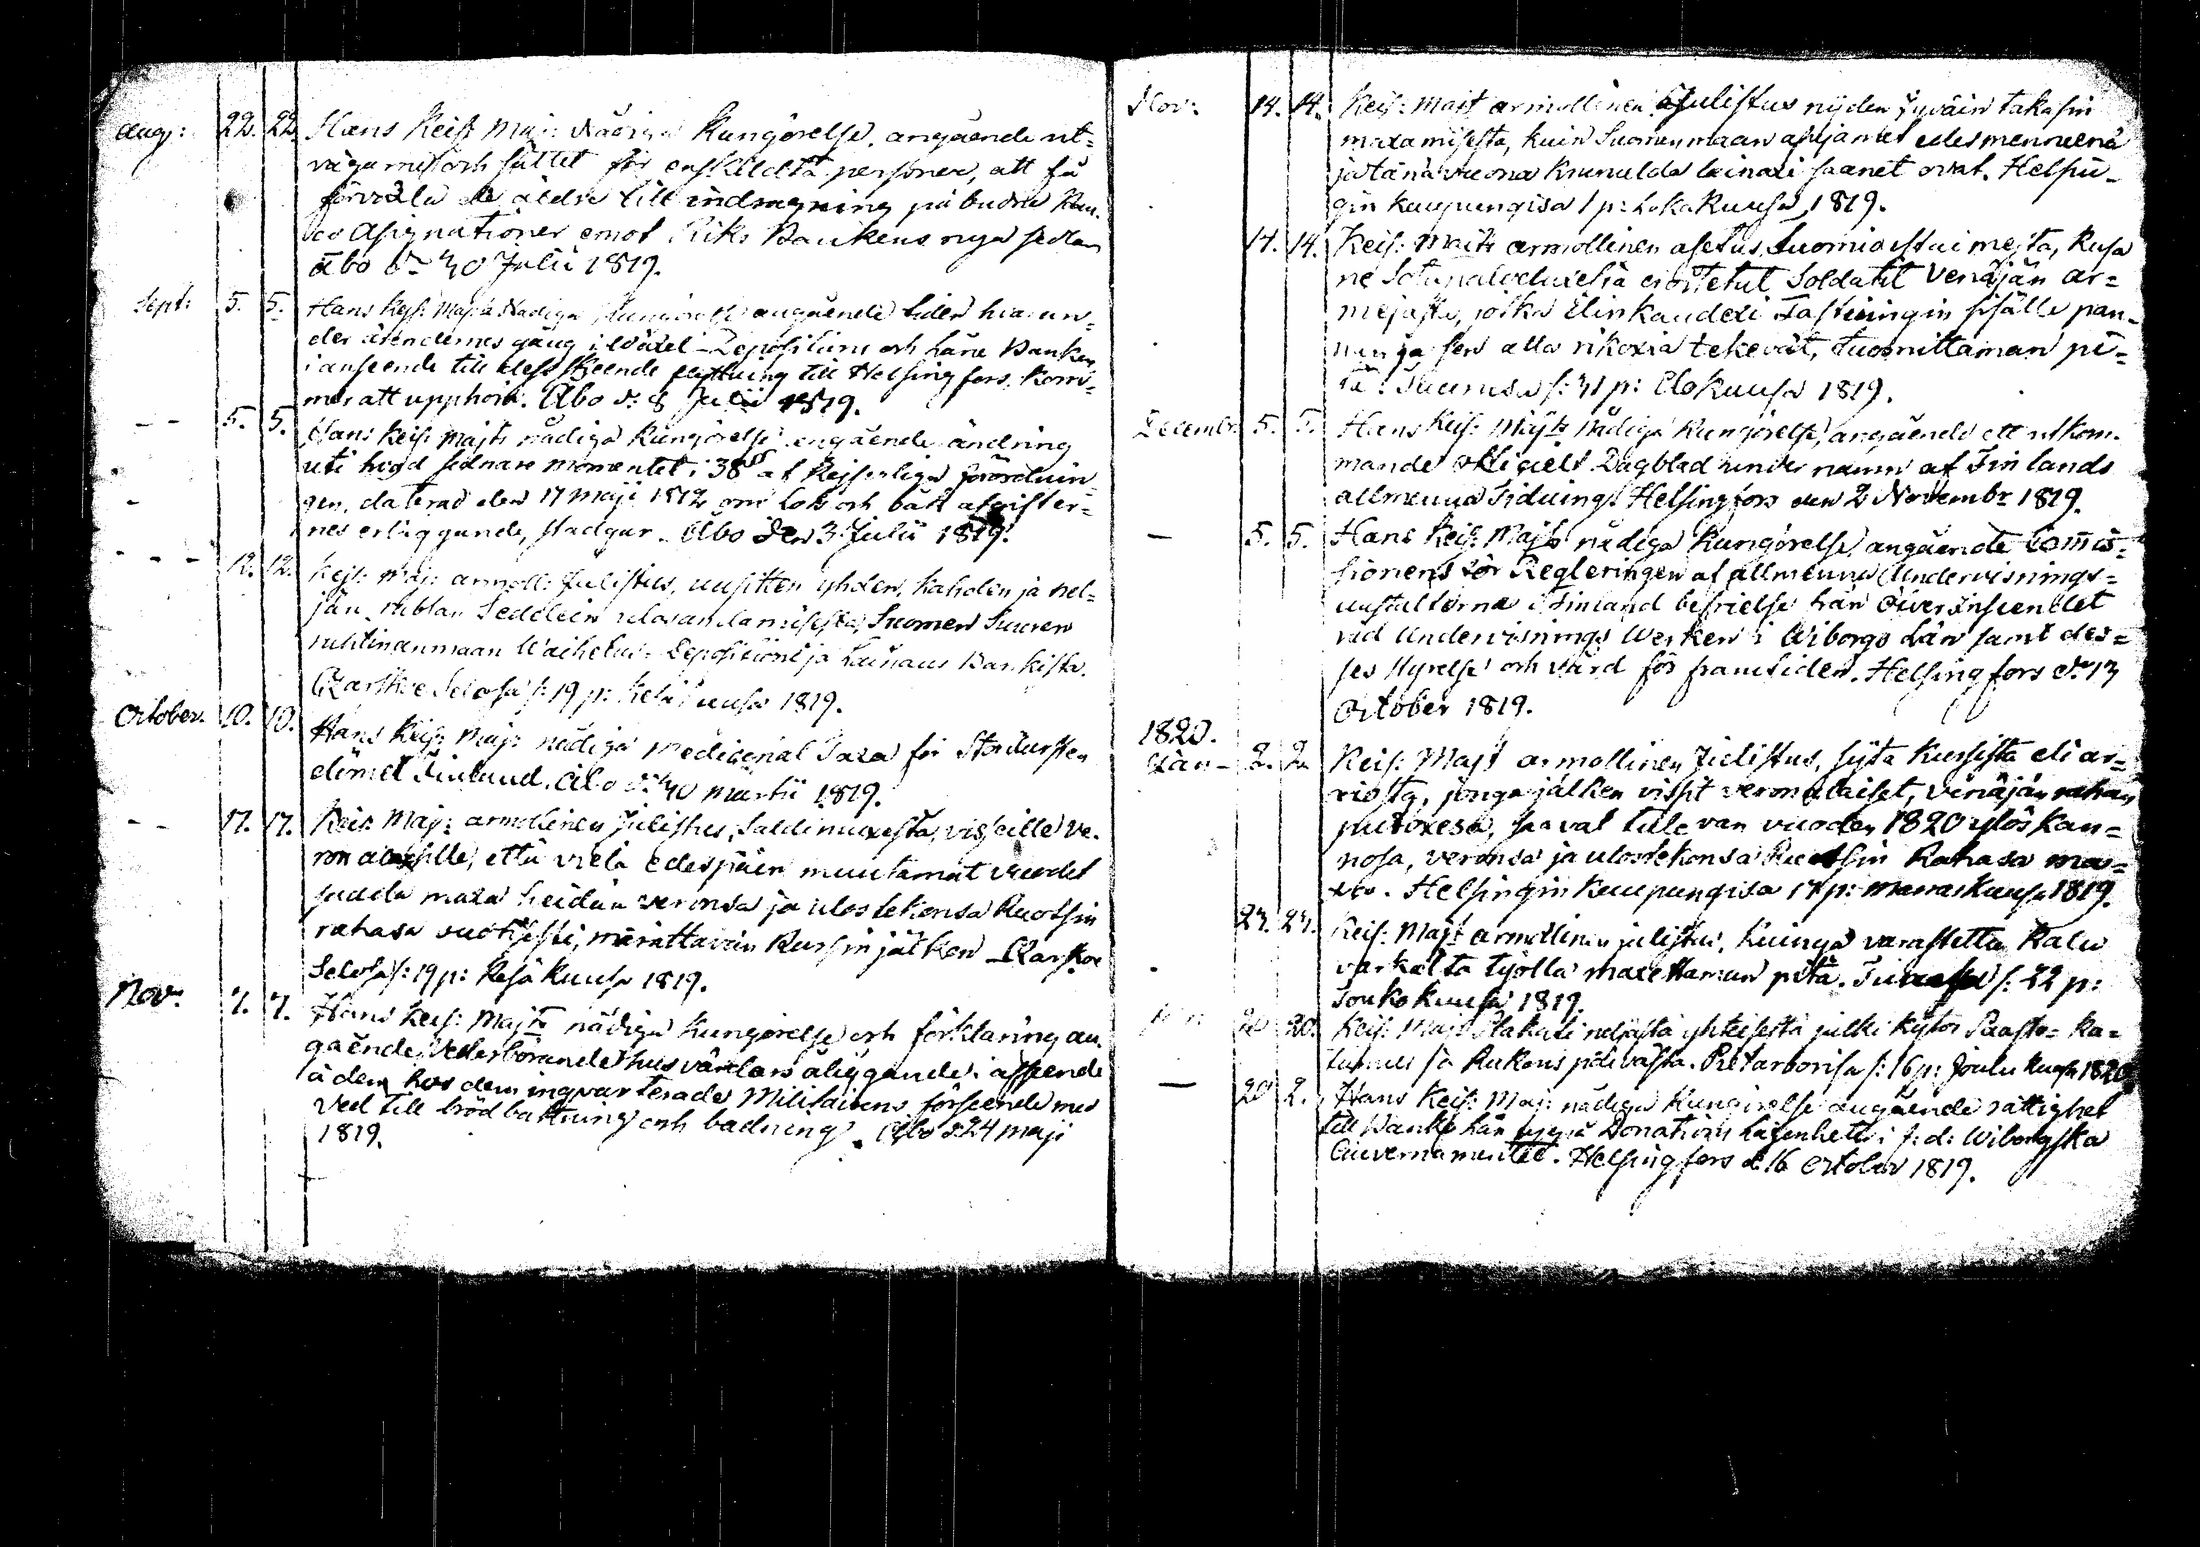 Aug: 22. 22. Hans Keis Maj: Nådiga Kungörelse, angående ut=
vägarne och sättet för enskildta personer, att få
förvexla de äldre till indragning påbudne Ban-
co Assignationer emot Riks Bankens nya sedlar
Åbo dn 30 Julii 1819.
Sept: 5. 5. Hans Keis: Maj:ts Nådiga Kungörelse angående tiden hvarun-
der ärendernes gång i Wäxel- Depositions och Låne Banken
i anseende till dess skeende flyttning till Helsingfors, kom-
mer att upphöra. Åbo d: 8 Julii 1819.
- - 5. 5. Hans Keis: Majts nådiga Kungörelse angående ändring
uti hvad sednare momentet i 38 § af Kejserliga förordnin-
gen, daterad den 17 Maji 1812 om Lots och båk afgifter-
nes erläggande, stadgar. Åbo den 3 Julii 1819.
- - - 12. 12. Keis: Maj: armoll: Julistus, uusitten yhden, kahden ja nel-
jän rublan Sedelein ulosandamisesta, Suomen Suuren
ruhtinanmaan Waihetus- Depositioni ja Lainaus Bankista.
Czarskoe Selosa s: 19 p: Kesä kuusa 1819.
October. 10. 10. Hans Keis: Maj: nådiga Medicinal Taxa för Storfursten
dömet Finland. Åbo d: 30 Martii 1819.
- - 17. 17. Keis: Maj: armollinen Julistus, Saldimuxesta, visseille ve-
ron alaisille, että vielä edespäin muutamat vuodet
saada maxa heidän veronsa ja ulostekonsa Ruotsin
rahasa suotuisesti, määrättävän kurssin jälken. Czarskoe
Selosa s: 19 p: Kesä Kuusa 1819.
Nov: 7. 7. Hans Keis: Majts nådiga Kungörelse och förklaring an-
gående Vederbörande husvärdars åliggande i afseende
å den hos dem inqvarterade Militairens förseende med
Ved till bröd bakning och badning. Åbo d: 24 Maji
1819.
Nov: 14. 14. Keis: Majt armollinen Julistus nijden jyväin takasin
maxamisesta, kuin Suomen maan asujamet edesmennenä
ja tänä vuonna Krunulda lainaxi saanet ovat. Helsin-
gin kaupungisa 1 p: Loka Kuusa 1819.
14. 14. Keis: Majts armollinen asetus, Tuomioistuimesta, kusa
ne Sotapalveluxesta eroitetut Soldatit Venäjän ar=
mejasta, jotka Elinkaudexi Fästningin sisälle pan-
nan ja sen alla rikoxia tekevät, tuomittaman pi-
tä. Turusa s: 31 p: Elokuusa 1819.
Decembr. 5. 5. Hans Keis: Majts Nådiga Kungörelse, angående ett utkom-
mande officielt Dagblad under namn af Finlands
allmenna Tidning. Helsingfors den 2 Novembr 1819.
- 5. 5. Hans Keis: Majts nådiga Kungörelse angående Comis-
sionens för Regleringen af allmenna Undervisnings=
anstalterne i Finland befrielse från Öfverinseendet
vid Undervisnings Werken i Wiborgs Län samt des=
ses styrelse och vård för framtiden. Helsingfors dn 13
October 1819.
1820.
Jan- 2. 2. Keis: Majt armollinen Julistus, sijtä kurssista eli ar-
viosta, jonga jälken vissit veronalaiset, venäjän rahan
putoxesa, saavat tulevan vuoden 1820 ylöskan=
nosa, veronsa ja ulostekonsa Ruotsin Rahasa ma=
xaa. Helsingin kaupungisa 17 p: Marras Kuusa 1819.
23. 23. Keis: Majt armollinen julistus, kuinga varastettu Kalu
varkalta työlla maxettaman pitä. Turusa s: 22 p:
Toukokuusa 1819.
20 20. Keis: Majt Plakati neljästä yhteisestä julki kijtos Paasto= Ka=
tumus ja Rukous päivästä. Pietarborisa s: 16 p: Joulu kuusa 1820
- 20 2. Hans Keis: Maj: nådiga Kungörelse angående rättighet
till Banke Lån Donations Lägenheter i f: d: Wiborgska
Guvernamentet. Helsingfors d 16 October 1819.